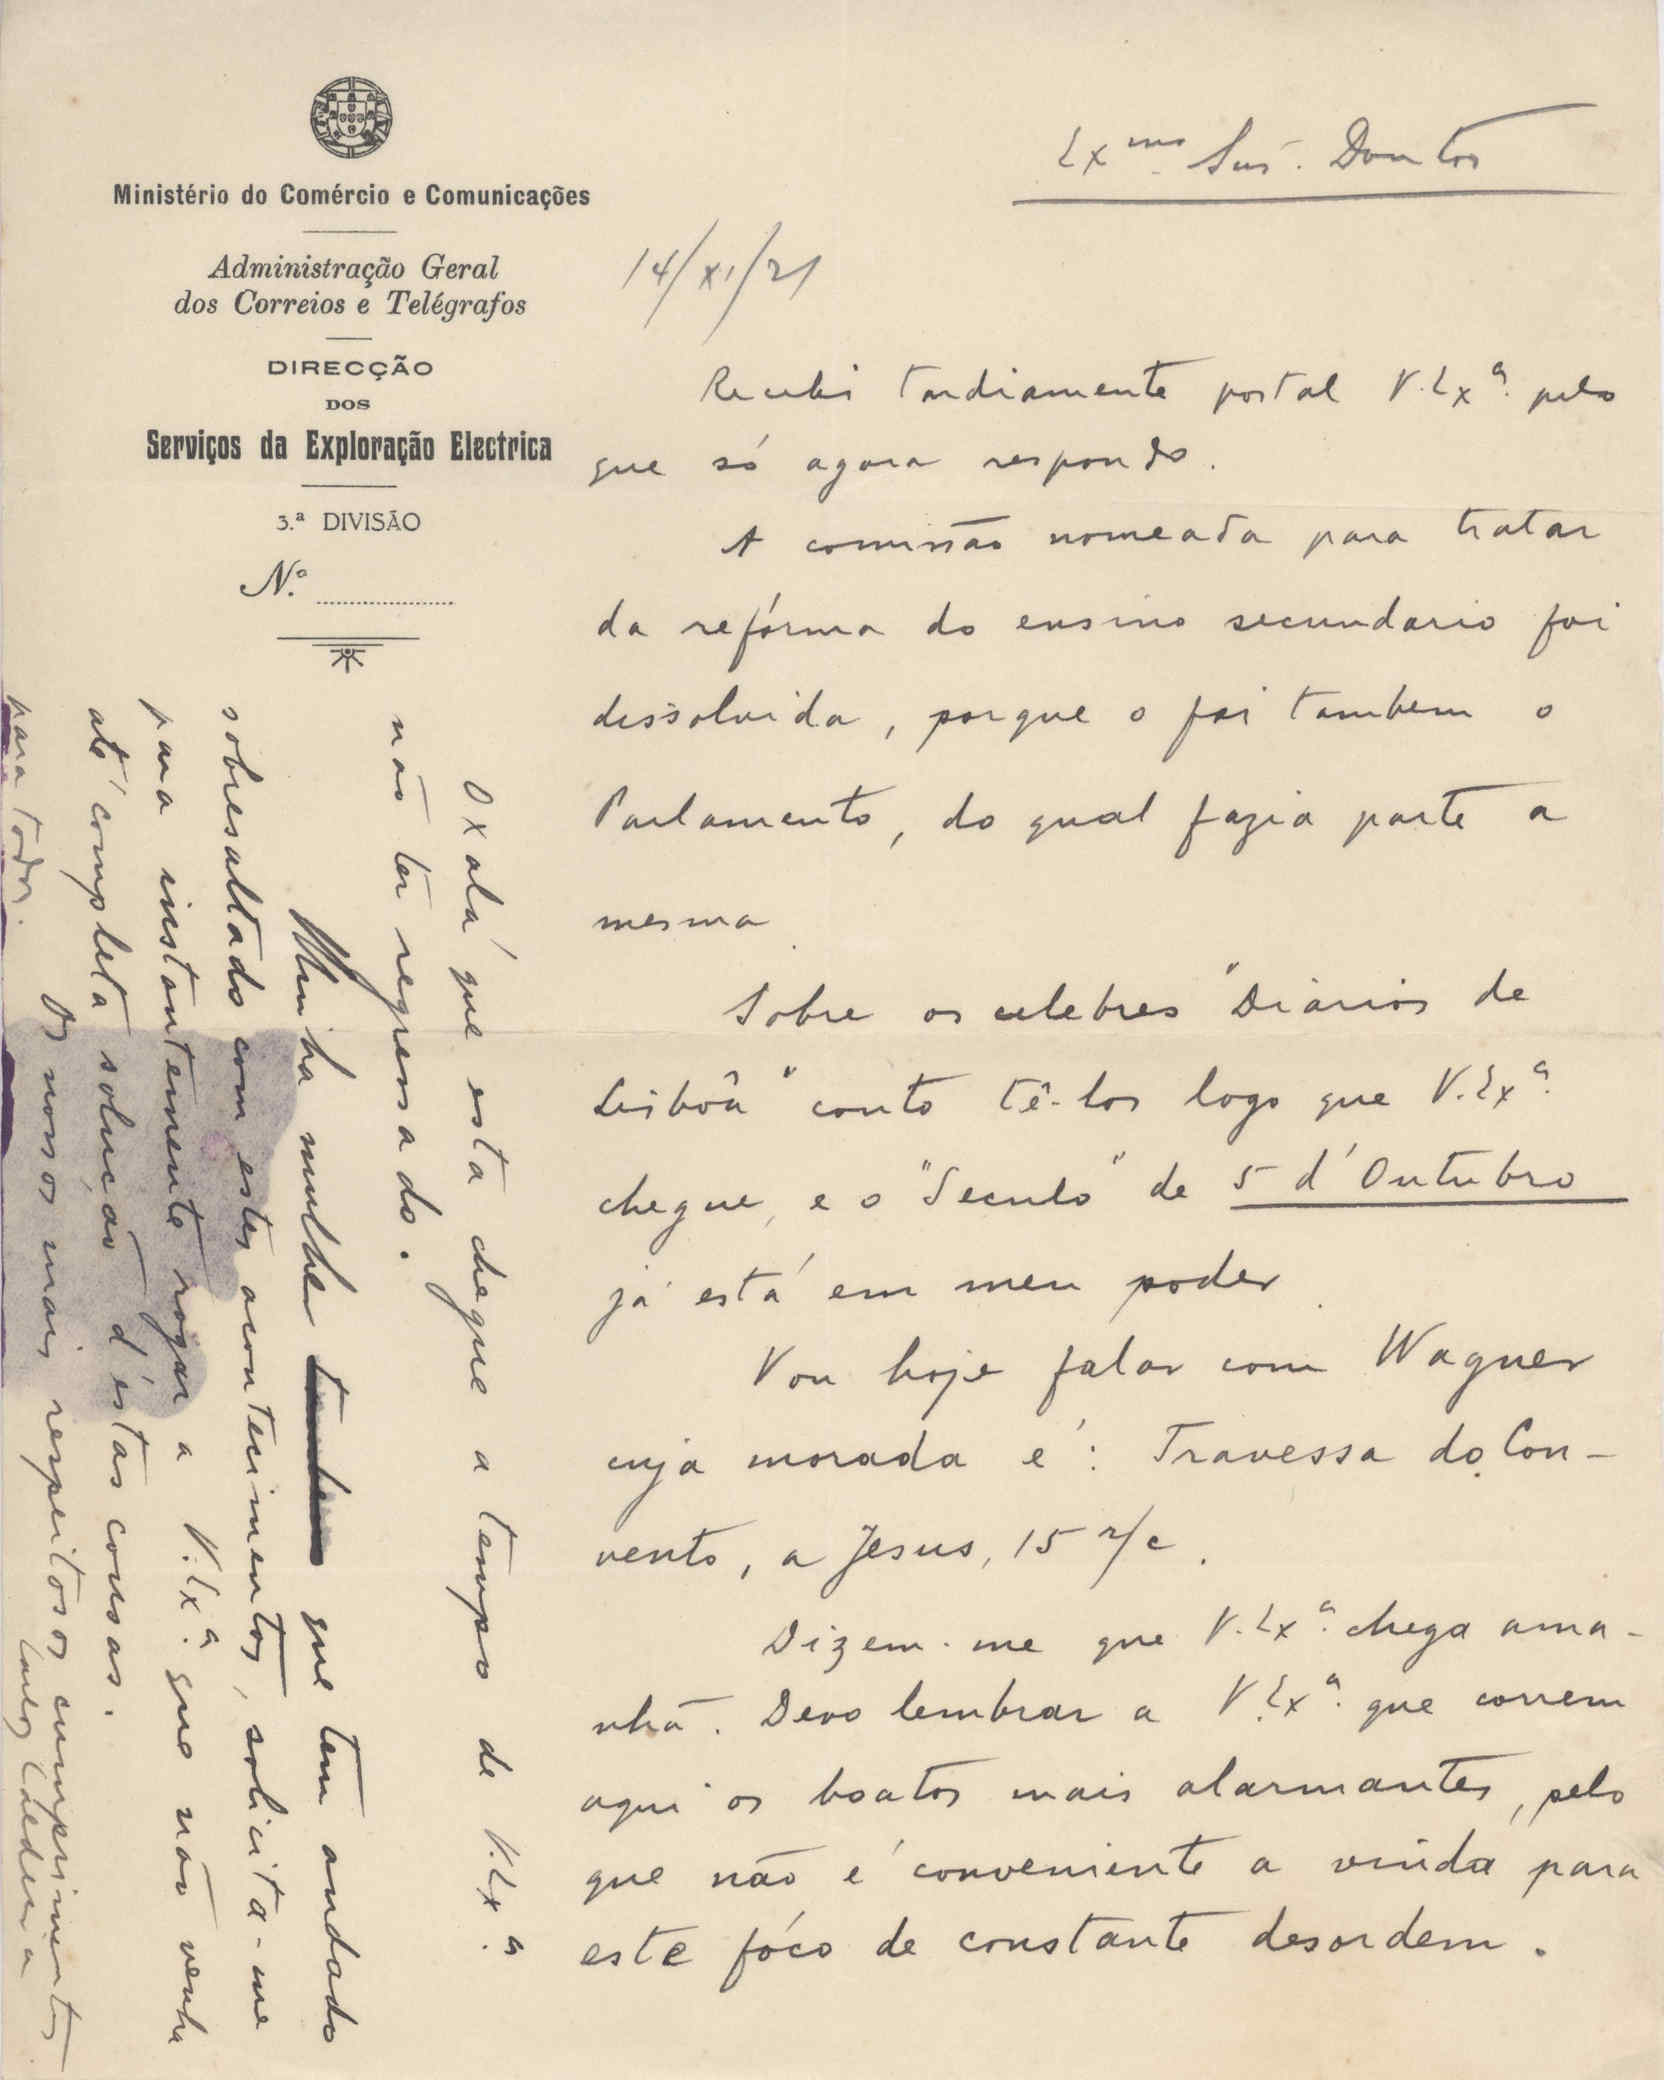 Ministério do Comércio e Comunicações
Administração Geral
dos Correios e Telégrafos
DIRECÇÃO
DOS
Serviços da Exploração Electrica
3.ª DIVISÃO
N.º
Exmo Snr. Doutor
14/XI/21
Recebi tardiamente postal V. Exª. pelo
que só agora respondo.
A comissão nomeada para tratar
da refórma do ensino secundario foi
dissolvida, porque o foi tambem o
Parlamento, do qual fazia parte a
mesma.
Sobre os celebres "Diários de
Lisbôa" conto tê-los logo que V. Exª.
chegue, e o "Seculo" de 5 d'Outubro
já está em meu poder.
Vou hoje falar com Wagner
cuja morada é: Travessa do Con-
vento, a Jesus, 15 r/c.
Dizem-me que V. Exª. chega ama-
nhã. Devo lembrar a V. Exª. que correm
aqui os boatos mais alarmantes, pelo
que não é conveniente a vinda para
este fóco de constante desordem.
Oxalá que esta chegue a tempo de V. Exª.
não ter regressado.
Minha mulher que tem andado
sobresaltado com estes acontecimentos, solicita-me
para instantemente rogar a V. Exª. que não venha
até completa solução d'éstas cousas.
Os nossos mais respeitosos cumprimentos
para todos.
Carlos Caldeira